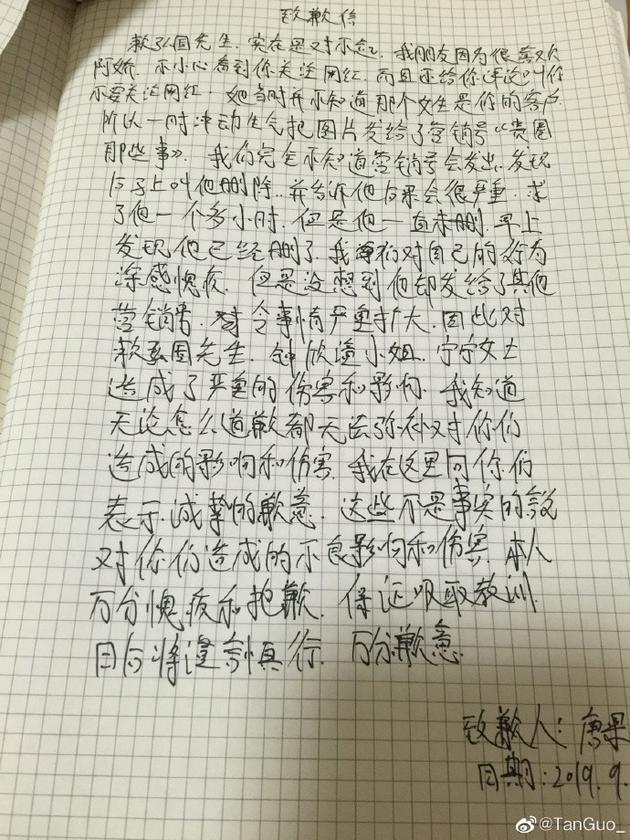 致歉信
赖弘国先生.实在是对不起.我朋友因为很喜欢
阿娇.不小心看到你关注网红.而且还给你评论叫你
不要关注网红.她当时并不知道那个女生是你的客户.
所以一时冲动生气把图片发给了营销号《贵圈
那些事》.我们完全不知道营销号会发出.发现
后马上叫他删除.并告诉他后果会很严重.求
了他一个多小时.但是他一直未删.早上
发现他已经删了.我们对自己的行为
深感愧疚.但是没想到他却发给了其他
营销号.令事情严重扩大.因此对
赖弘国先生.钟欣潼小姐.宁宁女士
造成了严重的伤害和影响.我知道
无论怎么道歉都无法弥补对你们
造成的影响和伤害.我在这里向你们
表示.诚挚的歉意.这些不是事实的言论
对你们造成的不良影响和伤害.本人
万分愧疚和抱歉.保证吸取教训.
日后将谨言慎行.万分歉意.
致歉人:唐果
日期:2019.9.
@TanGuo_